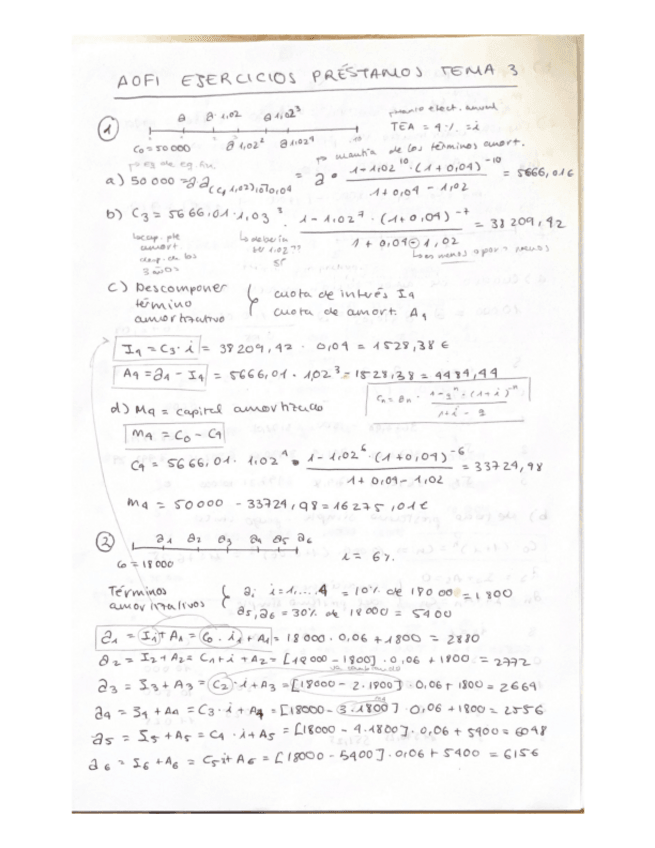 AOFI EJERCICIOS PRÉSTAMOS TEMA 3
① a a·1,02 a·1,02³ TEA = 4% = i
C₀ = 50000 a 1,02² a 1,02⁴ 10
cuantía de los términos amort.
a) 50 000 = a·a = a · 1 - 1,02¹⁰ · (1 + 0,04)⁻¹⁰ / 1 + 0,04 - 1,02 = 5666,016
b) C₃ = 5666,01 · 1,03³ · 1 - 1,02⁷ · (1 + 0,04)⁻⁷ / 1 + 0,04 - 1,02 = 38 209,42
amort
3 años
c) Descomponer
término
amortizativo
{ cuota de interés I₄
cuota de amort. A₄
I₄ = C₃ · i = 38 209,42 · 0,04 = 1528,38 €
A₄ = a₄ - I₄ = 5666,01 · 1,02³ - 1528,38 = 4484,44
d) M₄ = capital amortizado
Cₙ = aₙ · 1 - qⁿ · (1+i)⁻ⁿ / 1+i - q
M₄ = C₀ - C₄
C₄ = 5666,01 · 1,02⁴ · 1 - 1,02⁶ · (1 + 0,04)⁻⁶ / 1 + 0,04 - 1,02 = 33724,98
M₄ = 50000 - 33724,98 = 16275,01 €
② a₁ a₂ a₃ a₄ a₅ a₆ i = 6%
C₀ = 18000
Términos
amortizativos
{ aᵢ i = 1,....4 = 10% de 18000 = 1800
a₅, a₆ = 30% de 18000 = 5400
a₁ = I₁ + A₁ = C₀ · i₁ + A₁ = 18000 · 0,06 + 1800 = 2880
a₂ = I₂ + A₂ = C₁ · i + A₂ = [18000 - 1800] · 0,06 + 1800 = 2772
a₃ = I₃ + A₃ = C₂ · i + A₃ = [18000 - 2·1800] · 0,06 + 1800 = 2664
a₄ = I₄ + A₄ = C₃ · i + A₄ = [18000 - 3·1800] · 0,06 + 1800 = 2556
a₅ = I₅ + A₅ = C₄ · i + A₅ = [18000 - 4·1800] · 0,06 + 5400 = 6048
a₆ = I₆ + A₆ = C₅ i + A₆ = [18000 - 5400] · 0,06 + 5400 = 6156